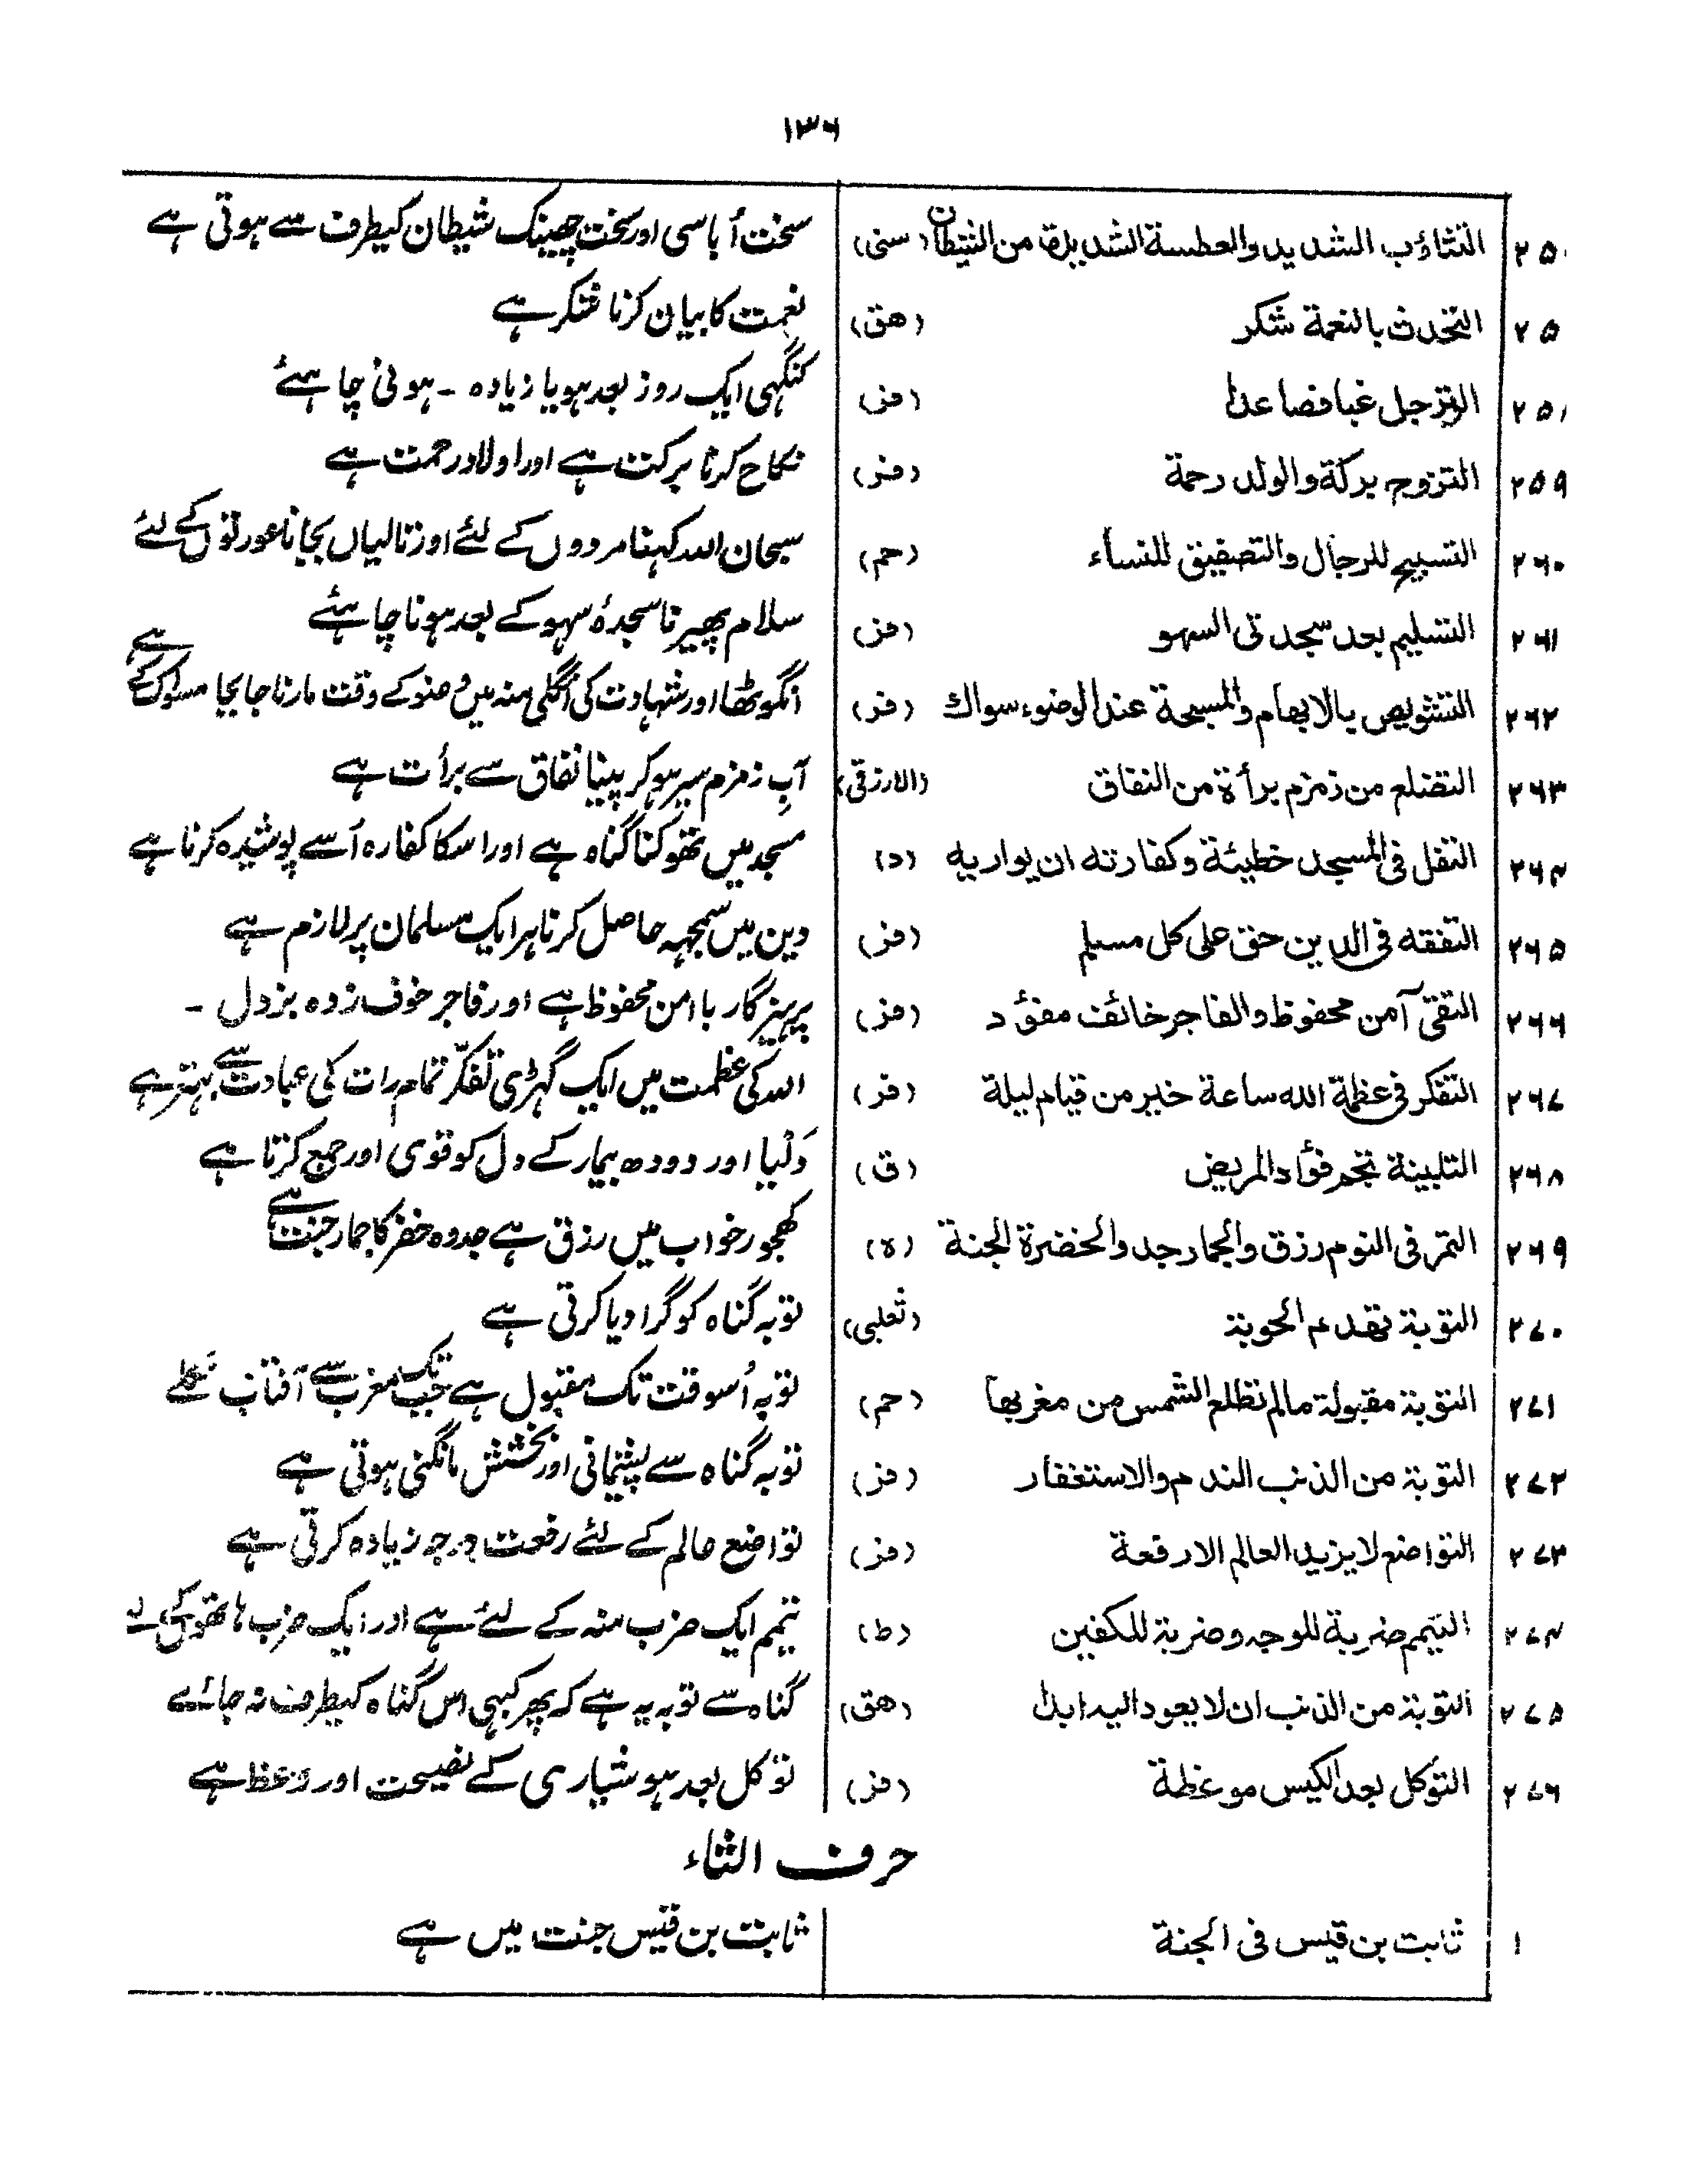 ۱۳۶
۲۵ التثاؤب الشدید والعطسة الشدیدة من الشیطان (سنی) سخت اُباسی اور سخت چھینک شیطان کیطرف سے ہوتی ہے
۲۵ التحدث بالنعمة شکر (هق) نعمت کا بیان کرنا شکر ہے
۲۵ الترجل غبا فصاعدا (فر) کنگہی ایک روز بعد ہو یا زیادہ ۔ ہونی چاہئے
۲۵۹ التزوج برکة والولد رحمة (فر) نکاح کرنا برکت ہے اور اولاد رحمت ہے
۲۶۰ التسبیح للرجال والتصفیق للنساء (حم) سبحان اللہ کہنا مردوں کے لئے اور تالیاں بجانا عورتوں کے لئے ہے
۲۶۱ التسلیم بعد سجدتی السهو (فر) سلام پھیرنا سجدۂ سہو کے بعد ہونا چاہئے
۲۶۲ التشویص بالابهام والمسبحة عند الوضوء سواك (فر) انگوٹھا اور شہادت کی انگلی منہ میں وضو کے وقت مارنا جا بجا مسواک کے
۲۶۳ التضلع من زمزم برأة من النفاق (الازرقی) آبِ زمزم سیر ہو کر پینا نفاق سے برأت ہے
۲۶۴ التفل فی المسجد خطیئة وکفارته ان یواریه (د) مسجد میں تھوکنا گناہ ہے اور اسکا کفارہ اُسے پوشیدہ کرنا ہے
۲۶۵ التفقه فی الدین حق علی کل مسلم (فر) دین میں سمجہہ حاصل کرنا ہر ایک مسلمان پر لازم ہے
۲۶۶ التقی آمن محفوظ والفاجر خائف مفؤد (فر) پرہیزگار با امن محفوظ ہے اور فاجر خوف زدہ بزدل ۔
۲۶۷ التفکر فی عظمة الله ساعة خیر من قیام لیلة (فر) اللہ کی عظمت میں ایک گہڑی تفکّر تمام رات کی عبادت سے بہتر ہے
۲۶۸ التلبینة تجم فؤاد المریض (ق) دَلْیا اور دودھ بیمار کے دل کو قوی اور جمع کرتا ہے
۲۶۹ التمر فی النوم رزق والجمار جد والخضرة الجنة (ہ) کھجور خواب میں رزق ہے جدوہ خضر کا جمار جنت ہے
۲۷۰ التوبة تهدم الحوبة (ثعلبی) توبہ گناہ کو گرا دیا کرتی ہے
۲۷۱ التوبة مقبولة مالم تطلع الشمس من مغربها (حم) توبہ اُسوقت تک مقبول ہے جب تک مغرب سے آفتاب نکلے
۲۷۲ التوبة من الذنب الندم والاستغفار (فر) توبہ گناہ سے پشیمانی اور بخشش مانگنی ہوتی ہے
۲۷۳ التواضع لا یزید العالم الا رفعة (فر) تواضع عالم کے لئے رفعت درجہ زیادہ کرتی ہے
۲۷۴ التیمم ضربة للوجه وضربة للکفین (ط) تیمم ایک ضرب منہ کے لئے ہے اور ایک ضرب ہاتھوں کی
۲۷۵ التوبة من الذنب ان لا یعود الیه ابدا (هق) گناہ سے توبہ یہ ہے کہ پھر کبہی اس گناہ کیطرف نہ جائے
۲۷۶ التوکل بعد الکیس موعظة (فر) توکل بعد ہوشیاری کے نصیحت اور وعظ ہے
حرف الثاء
۱ ثابت بن قیس فی الجنة ثابت بن قیس جنت میں ہے